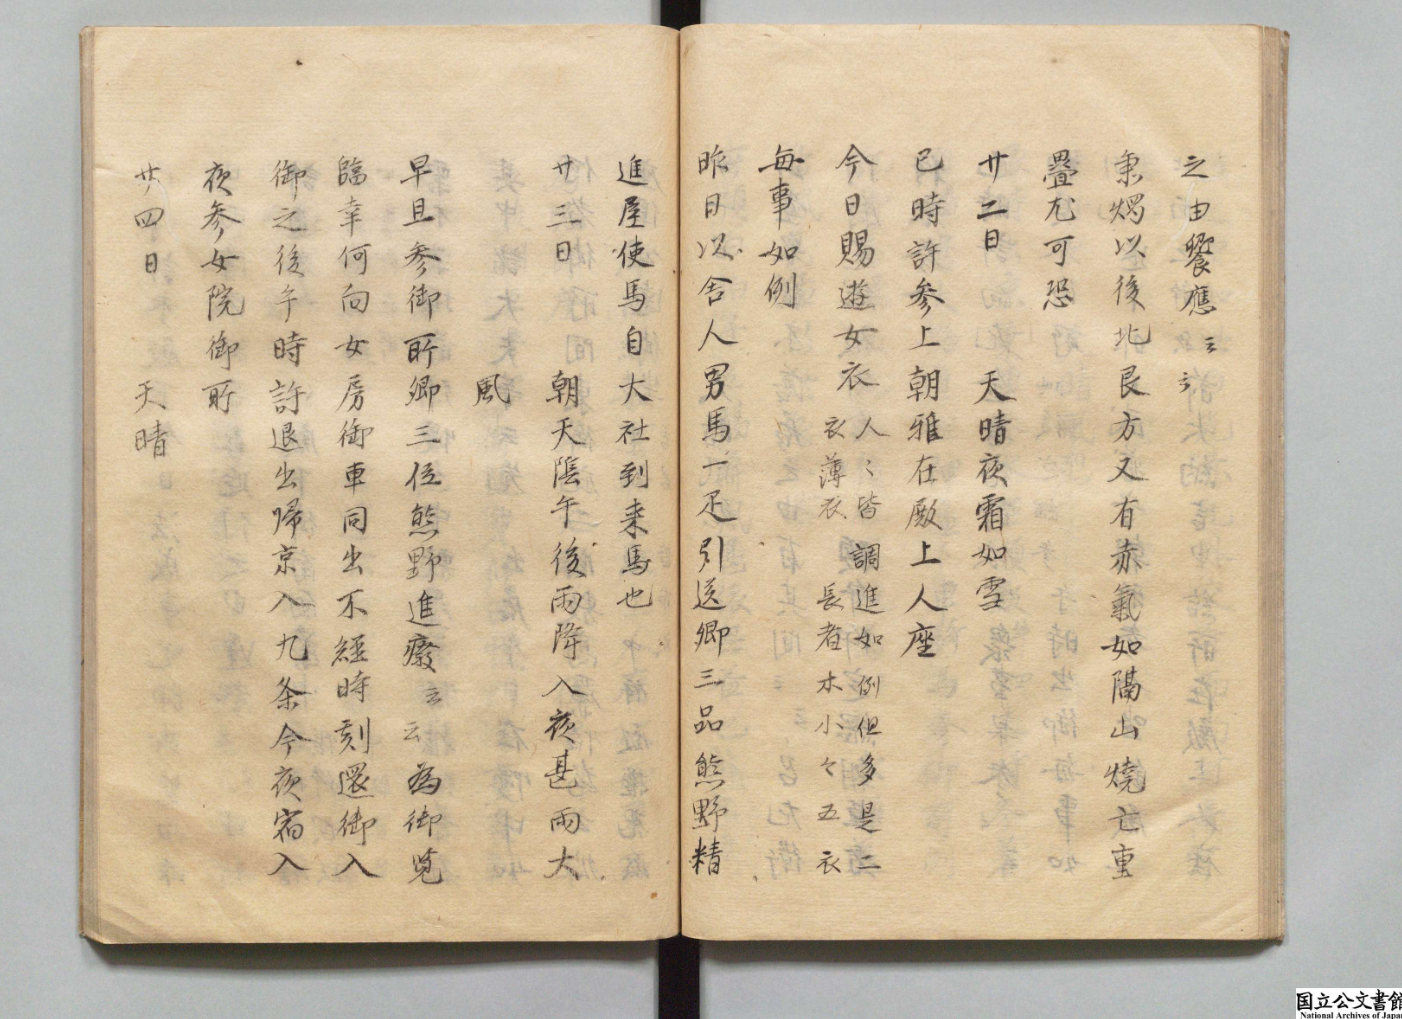 之由饗應云々
秉燭以後北艮方又有赤氣如隔山燒亡重
疊尤可恐
廿二日　天晴夜霜如雪
巳時許参上朝雅在殿上人座
今日賜遊女衣人々皆調進如例但多是二
衣薄衣　長者木小々五衣
毎事如例
昨日以舎人男馬一疋引送卿三品熊野精
進屋使馬自大社到来馬也
廿三日　朝天陰午後雨降入夜甚雨大
風
早旦参御所卿三位熊野進癈云云為御覧
臨幸何向女房御車同出不經時刻還御入
御之後午時許退出帰京入九条今夜宿入
夜参女院御所
廿四日　天晴
国立公文書館
National Archives of Japan